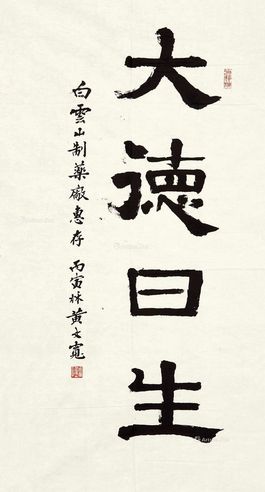 大德曰生
白雲山制藥廠惠存
丙寅秋黄文寬